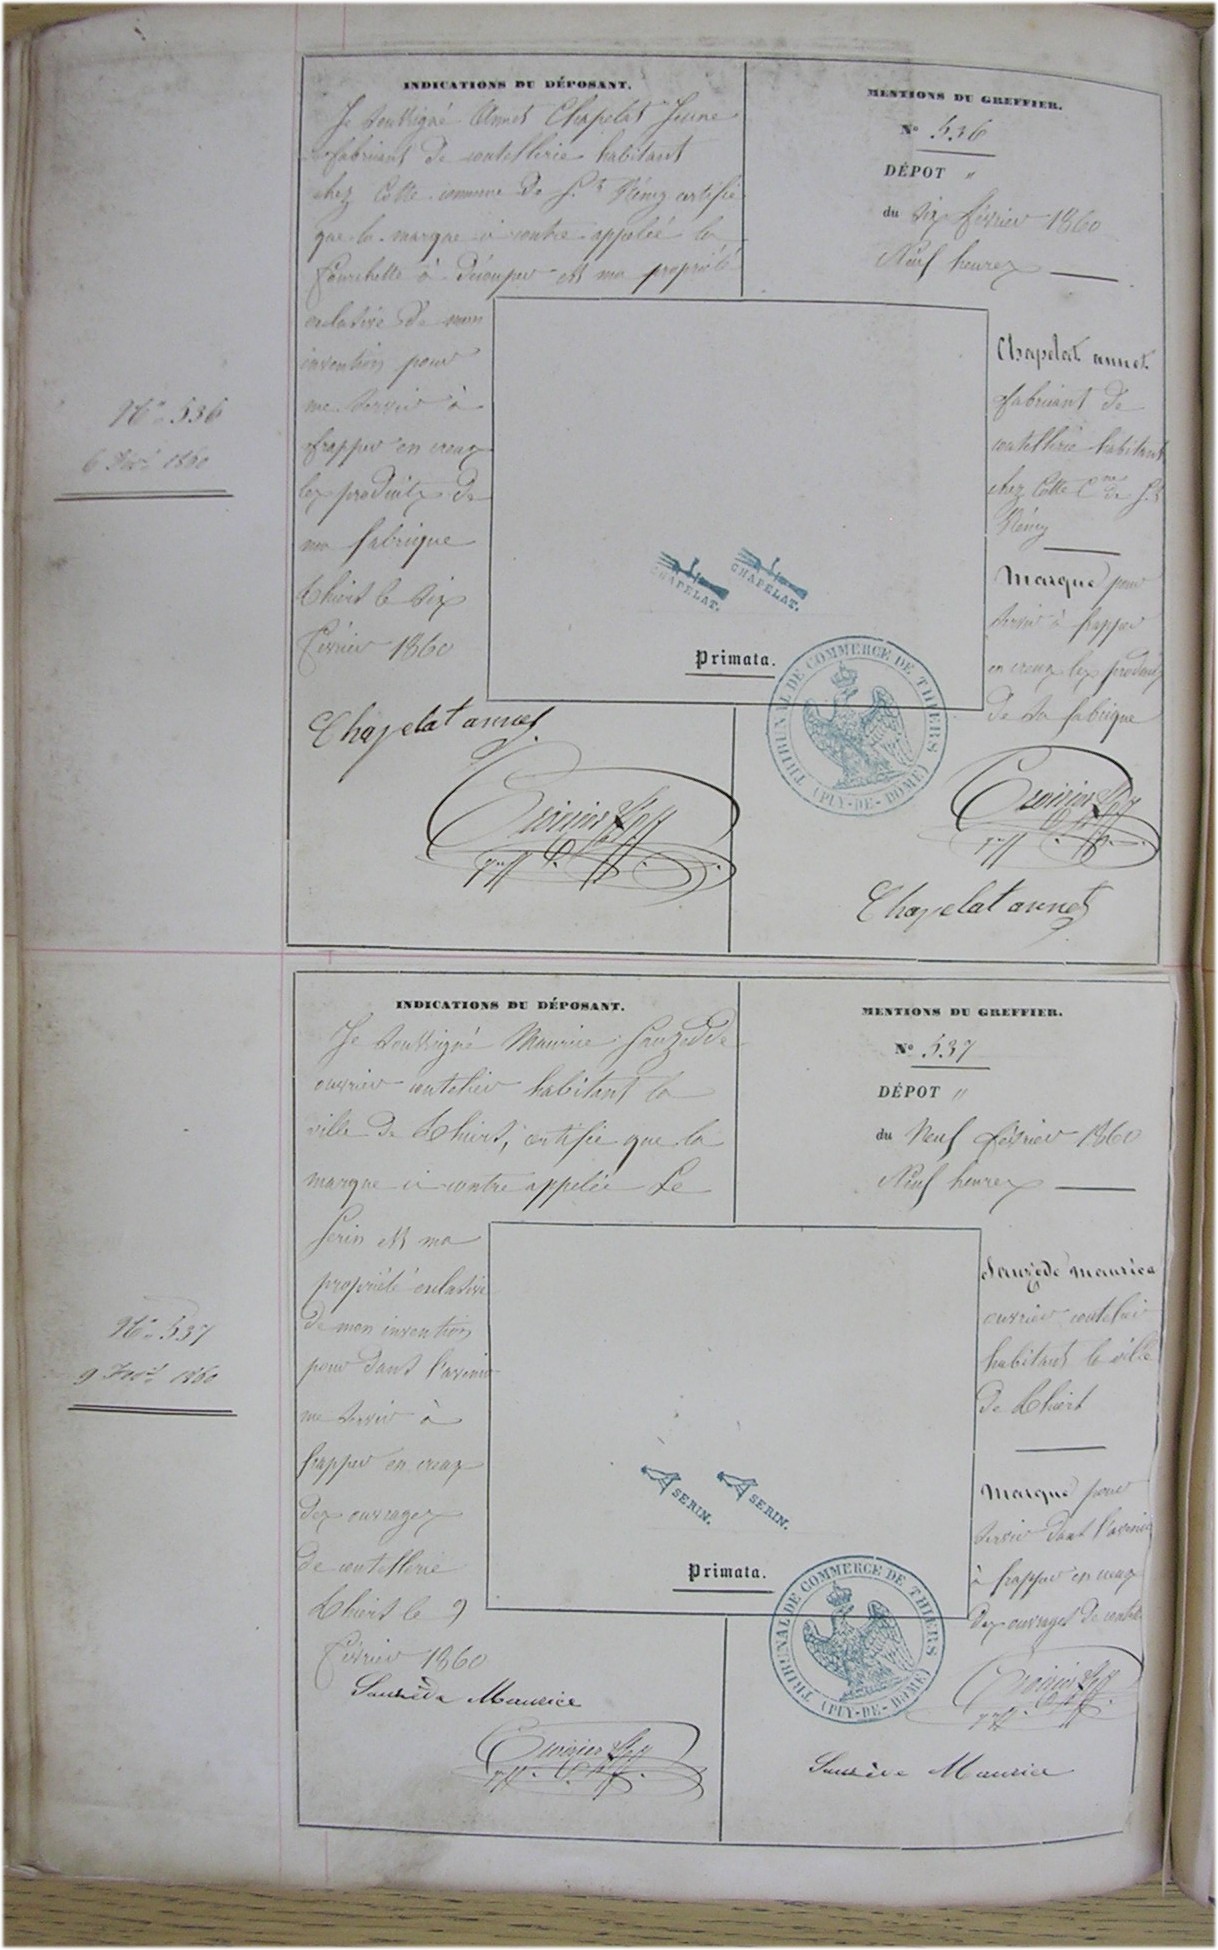 INDICATIONS DU DÉPOSANT.
Je soussigné Annet Chapelat Jeune
fabricant de coutellerie habitant
chez Cotte commune de St Rémy certifie
que la marque ci contre appelée la
fourchette à découper est ma propriété
exclusive de mon
invention pour
me servir à
frapper en creux
les produits de
ma fabrique
Thiers le six
février 1860
Chapelat annet
MENTIONS DU GREFFIER.
No 536
DÉPOT "
du six février 1860
Neuf heures
Chapelat annet
fabricant de
coutellerie habitant
chez Cotte Cne de St
Rémy
Marque pour
servir à frapper
en creux les produits
de sa fabrique
Chapelat annet
No 536
6 Fevr 1860
CHAPELAT.
CHAPELAT.
Primata.
TRIBUNAL DE COMMERCE DE THIERS
(PUY-DE-DOME)
INDICATIONS DU DÉPOSANT.
Je soussigné Maurice Sauzedde
ouvrier coutelier habitant la
ville de Thiers, certifie que la
marque ci contre appelée Le
Serin est ma
propriété exclusive
de mon invention
pour dans l'avenir
me servir à
frapper en creux
des ouvrages
de coutellerie
Thiers le 9
février 1860
Sauzède Maurice
MENTIONS DU GREFFIER.
No 537
DÉPOT "
du Neuf février 1860
Neuf heures
Sauzede maurice
ouvrier coutelier
habitant la ville
de Thiers
Marque pour
servir dans l'avenir
à frapper en creux
des ouvrages de coutel
Sauzède Maurice
No 537
9 Fevr 1860
SERIN.
SERIN.
Primata.
TRIBUNAL DE COMMERCE DE THIERS
(PUY-DE-DOME)